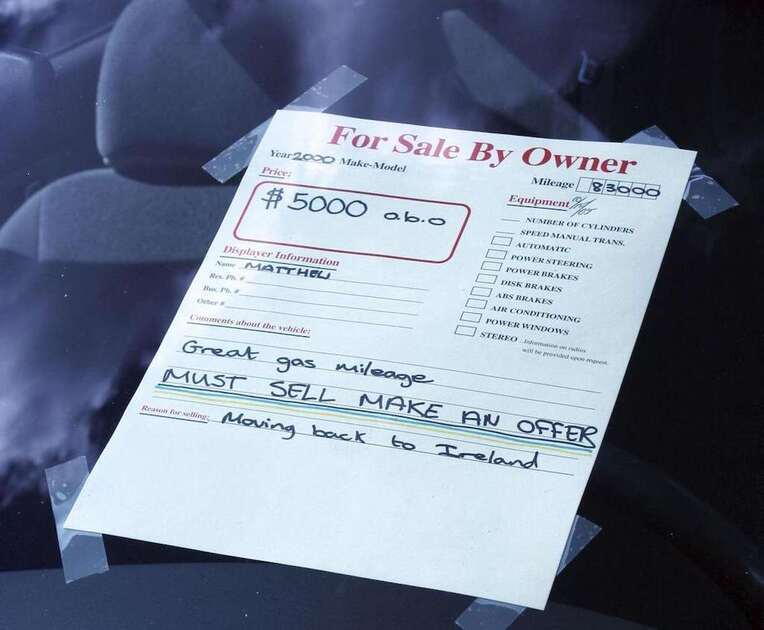 For Sale By Owner
Year 2000 Make-Model
Mileage 83000
Price:
$5000 o.b.o
Equipment
NUMBER OF CYLINDERS
SPEED MANUAL TRANS.
AUTOMATIC
POWER STEERING
POWER BRAKES
DISK BRAKES
ABS BRAKES
AIR CONDITIONING
POWER WINDOWS
STEREO Information on radios
will be provided upon request.
Displayer Information
Name MATTHEW
Res. Ph. #
Bus. Ph. #
Other #
Comments about the vehicle:
Great gas mileage
MUST SELL MAKE AN OFFER
Reason for selling: Moving back to Ireland